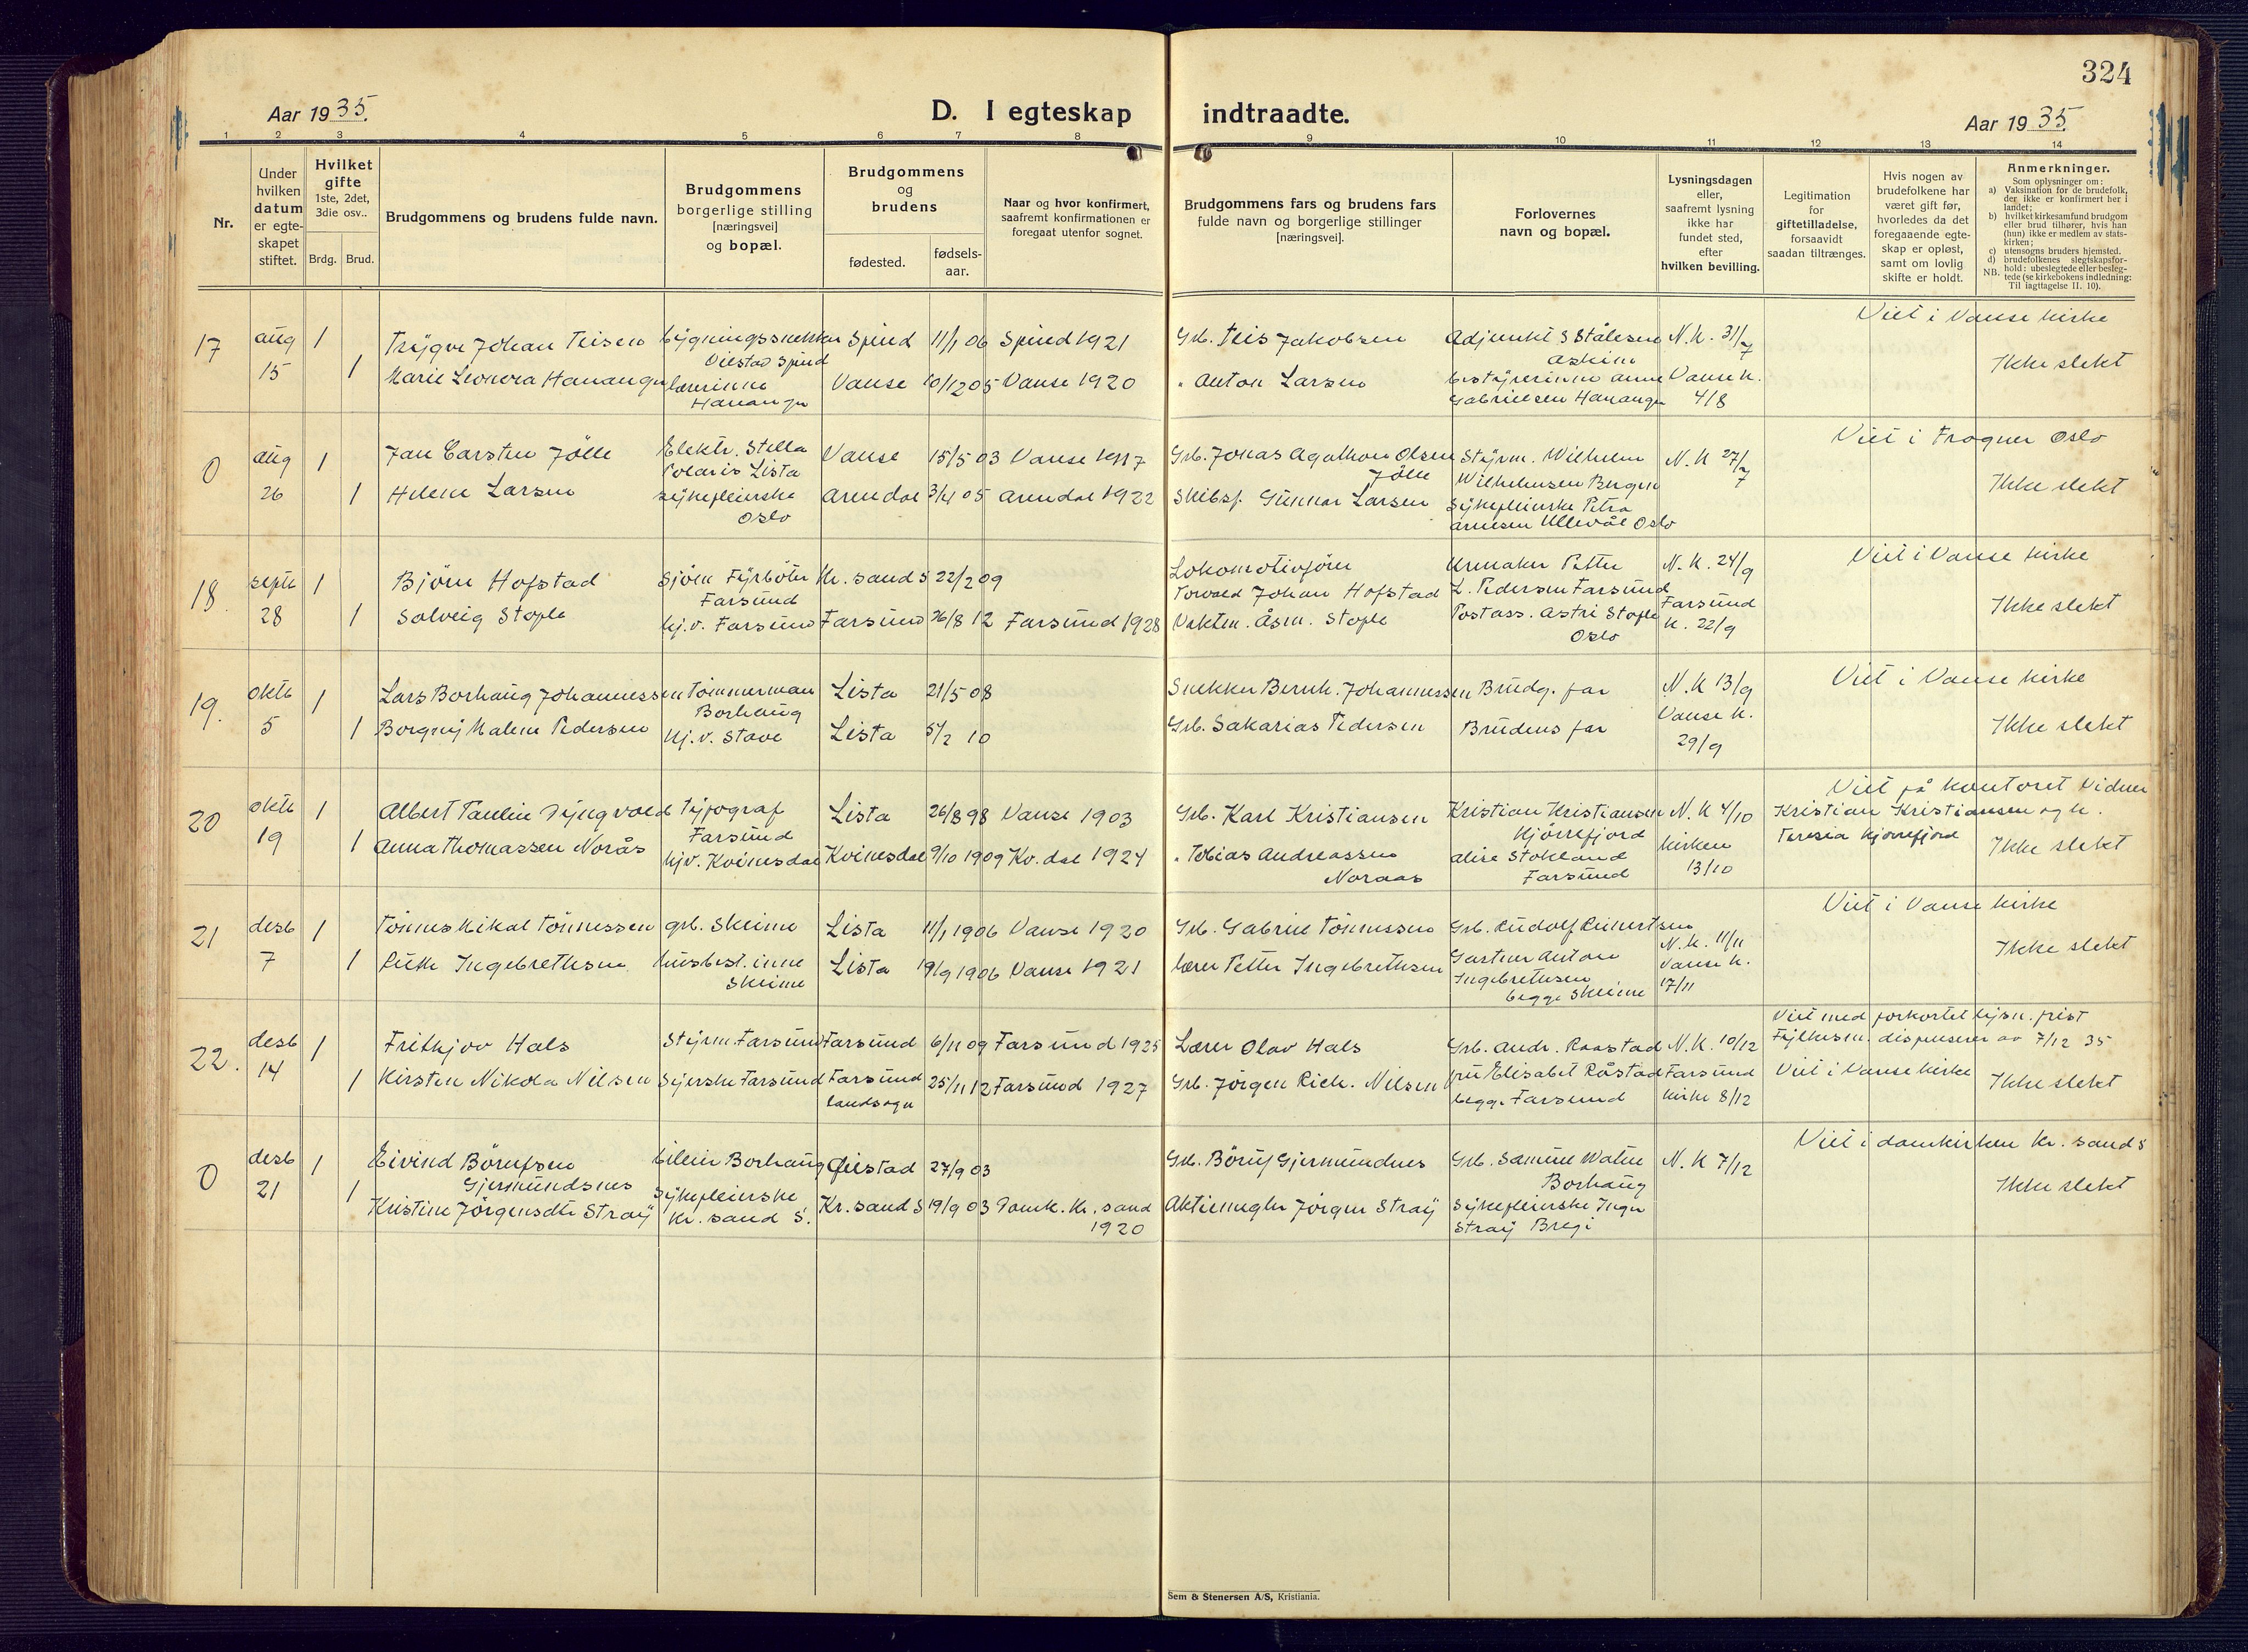 324
Aar 1935.
D. I egteskap indtraadte.
Aar 1935.
1 2 3 4 5 6 7 8 9 10 11 12 13 14
Nr.
Under hvilken datum er egte- skapet stiftet.
Hvilket gifte 1ste, 2det, 3die osv..
Brdg. Brud.
Brudgommens og brudens fulde navn.
Brudgommens borgerlige stilling [næringsvei] og bopæl.
Brudgommens og brudens
fødested.
fødsels- aar.
Naar og hvor konfirmert, saafremt konfirmationen er foregaat utenfor sognet.
Brudgommens fars og brudens fars fulde navn og borgerlige stillinger [næringsvei].
Forlovernes navn og bopæl.
Lysningsdagen eller, saafremt lysning ikke har fundet sted, efter hvilken bevilling.
Legitimation for giftetilladelse, forsaavidt saadan tiltrænges.
Hvis nogen av brudefolkene har været gift før, hvorledes da det foregaaende egte- skap er opløst, samt om lovlig skifte er holdt.
Anmerkninger.
Som oplysninger om:
a) Vaksination for de brudefolk, der ikke er konfirmert her i landet;
b) hvilket kirkesamfund brudgom eller brud tilhører, hvis han (hun) ikke er medlem av stats- kirken;
c) utensogns bruders hjemsted.
d) brudefolkenes slegtskapsfor- hold: ubeslegtede eller besleg- tede (se kirkebokens indledning: Til iagttagelse II. 10).
NB.
Viet i Vanse kirke
17 aug 1 Trygve Johan Teisen bygningssnekker Spind 11/1 06 Spind 1921 Grb. Teis Jakobsen Adjunkt S Stålesen N.k. 31/7
Oiestad Spind Askim Ikke slekt
15 1 Marie Leonora Hanangen lærerinne Vanse 10/12 05 Vanse 1920 " Anton Larsen bestyrerinne Anne Vanse k.
Hanangen Gabrielsen Hanangen 4/8
Viet i Frogner Oslo
0 aug 1 Jan Carsten Jølle Elektr. Stella Vanse 15/5 03 Vanse 1917 Grb. Jonas Agathon Olsen Styrm. Wilhelm N.k 27/7
Polaris Lista Jølle Wilhelmsen Bergen
26 1 Helene Larsen sykepleierske Arendal 3/4 05 Arendal 1922 Skibsf. Gunnar Larsen Sykepleierske Petra Ikke slekt
Oslo Arnesen Ullevål Oslo
Viet i Vanse kirke
18. septb 1 Bjørn Hofstad Sjøm Fyrbøter Kr. sand S 22/2 09 Lokomotivfører Urmaker Petter N.k. 24/9
Farsund Torvald Johan Hofstad Z. Pedersen Farsund
28 1 Solveig Stople hj.v. Farsund Farsund 26/8 12 Farsund 1928 Vaktm. Åsm. Stople Postass. Astri Stople Farsund Ikke slekt
Oslo k. 22/9
Viet i Vanse kirke
19. oktb 1 Lars Borhaug Johannessen Tømmerman Lista 21/5 08 Snekker Bernh. Johannessen Brudg. far N.k 13/9
Borhaug Vanse k.
5 1 Borgny Malene Pedersen hj.v. Stave Lista 5/2 10 Grb. Sakarias Pedersen Brudens far Ikke slekt
29/9
Viet på kontoret Vidner
20 oktb 1 Albert Paulin Syngvald Typograf Lista 26/8 98 Vanse 1903 Grb. Karl Kristiansen Kristian Kristiansen N.k 4/10 Kristian Kristiansen og h.
Farsund Kjørrefjord Teresia Kjørrefjord
19 1 Anna Thomassen Norås hjv. Kvinesdal Kvinesdal 9/10 1909 Kv.dal 1924 " Tobias Andreassen Alise Stokland kirken Ikke slekt
Noraas Farsund 13/10
Viet i Vanse kirke
21 desb 1 Tønnes Mikal Tønnessen grb. Skeime Lista 11/1 1906 Vanse 1920 Grb. Gabriel Tønnessen Grb. Rudolf Reinertsen
N.k. 11/11
7 1 Ingebrethsen husbest.inne Lista 19/9 1906 Vanse 1921 Lærer Petter Ingebrethsen Gartner Anton Vanse k. Ikke slekt
Skeime Ingebrethsen 17/11
begge Skeime
Viet med forkortet lysn. frist
22. desb 1 Frithjov Hals Styrm. Farsund Farsund 6/11 09 Farsund 1925 Lærer Olav Hals Grb. Andr. Raastad N.k. 10/12 Fylkesm. dispenserer av 7/12 35
14 1 Kirsten Nikola Nilsen Syerske Farsund Farsund 25/11 12 Farsund 1927 Grb. Jörgen Rick. Nilsen fru Elisabet Råstad Farsund Viet i Vanse kirke Ikke slekt
landsogn begge Farsund kirke 8/12
Viet i domkirken Kr. sand S
0 desb 1 Eivind Börufsen bileier Borhaug Öiestad 27/9 03 Grb. Böruf Gjermundnes Grb. Samuel Watne N.k 7/12
Gjermundsnes Borhaug
21 1 Kristine Jörgensdtr Straÿ Sykepleierske Kr. sand S 19/9 03 Domk. Kr. sand Aktiemegler Jörgen Straÿ Sykepleierske Inger Ikke slekt
Kr. sand S. 1920 Straÿ
Sem & Stenersen A/S, Kristiania.